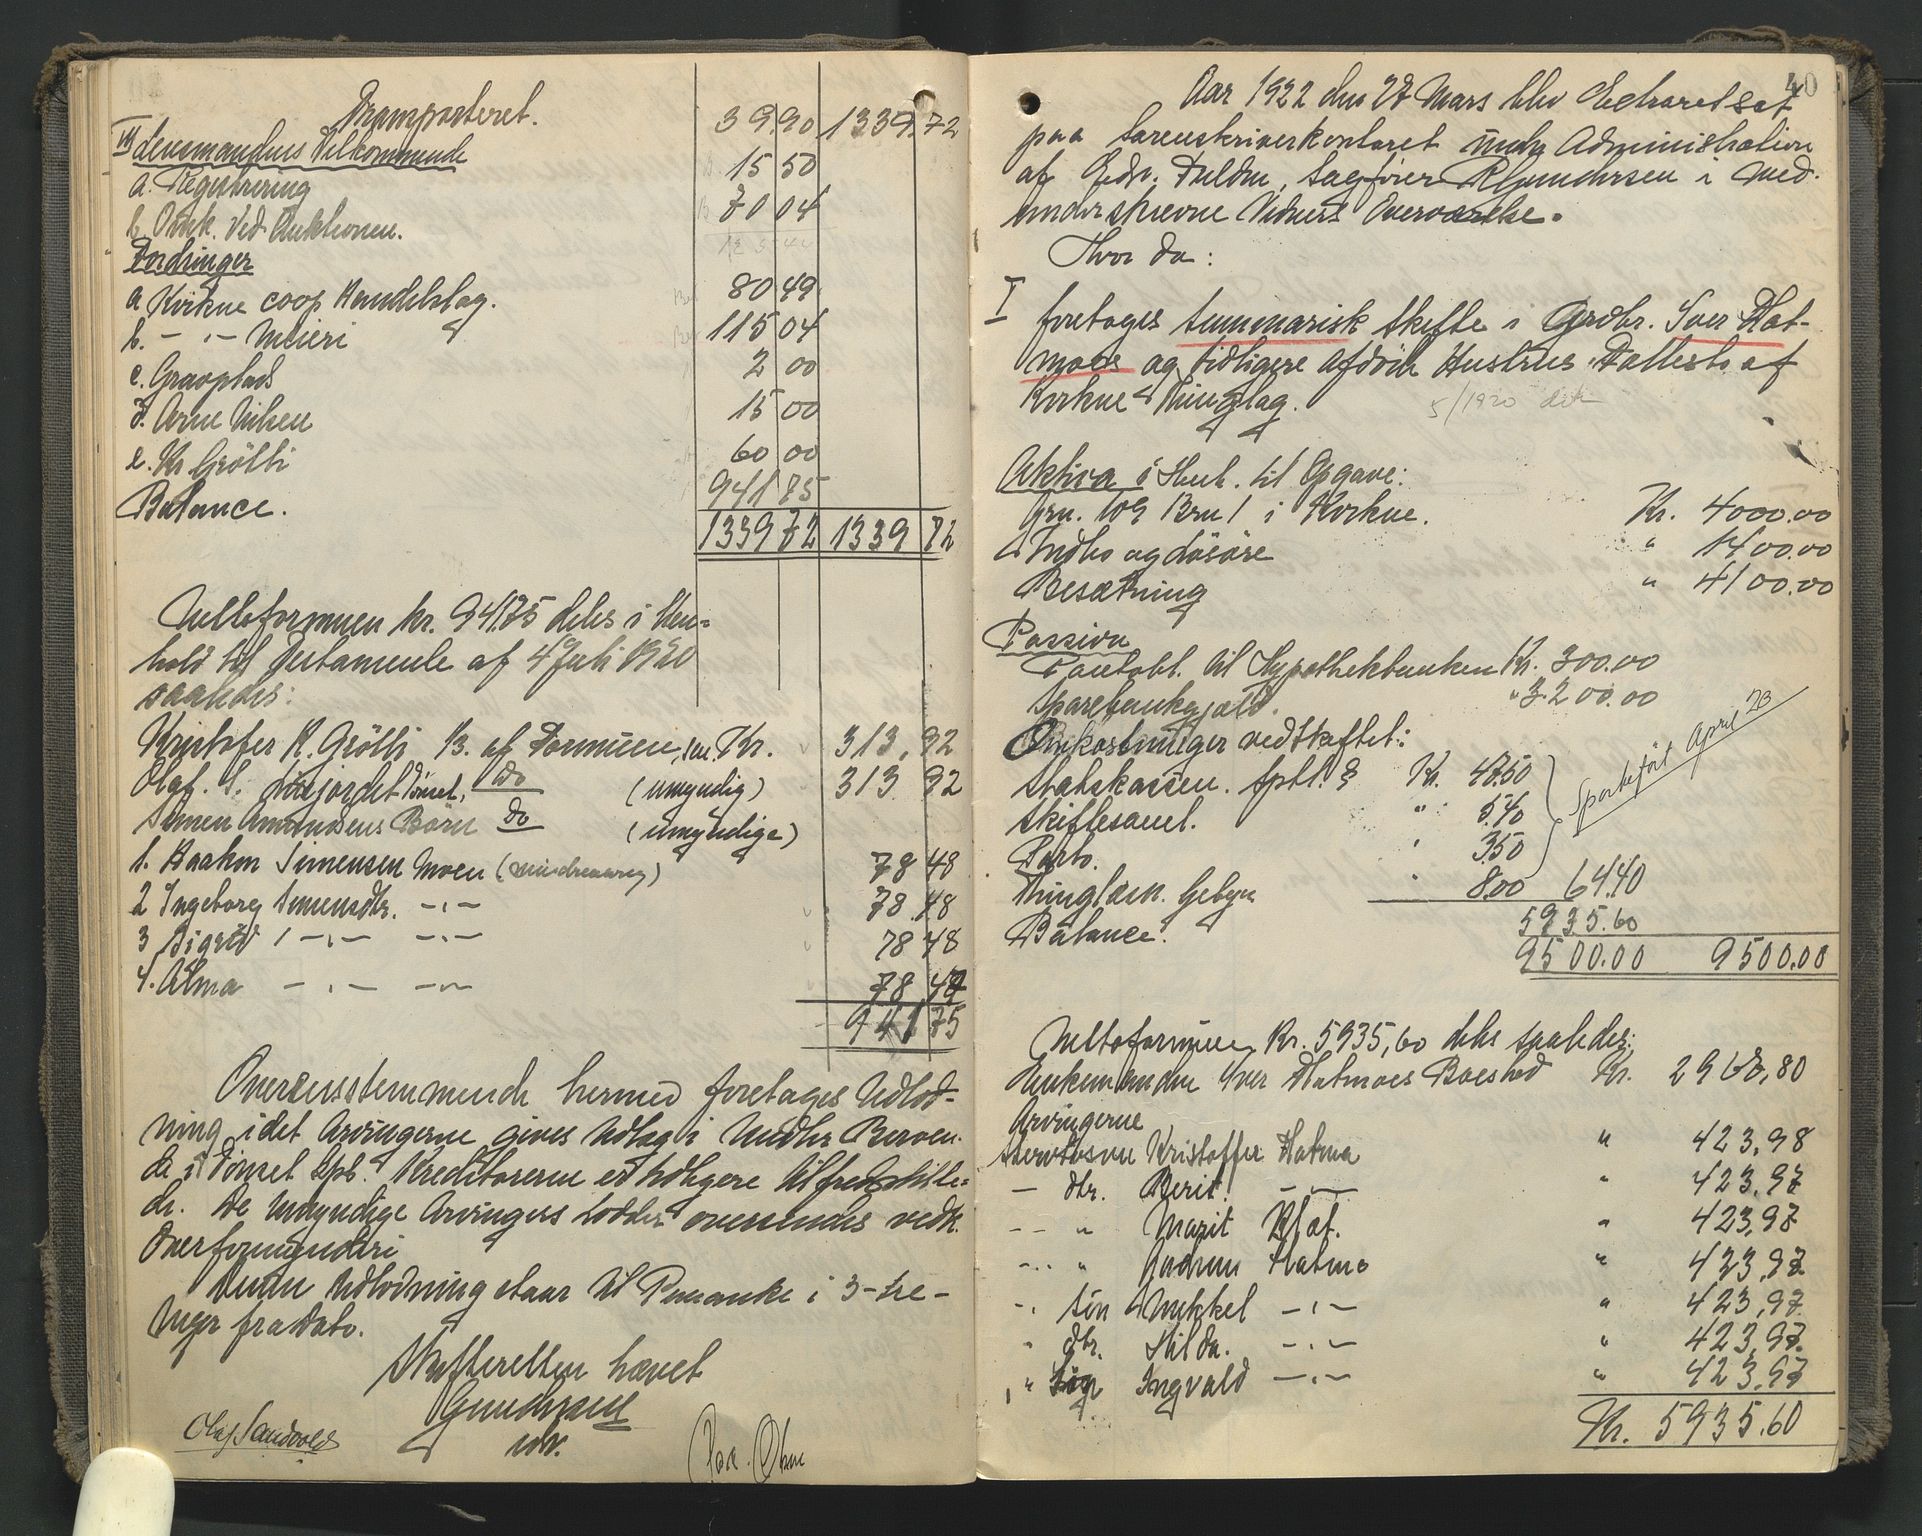 Transporteret. 39 90 1339,72
III Lensmandens Vilkommende
a. Registrering 15 50
b. Omk. ved Auktionen. 70 04
Fordringer
a Kvikne coop Handelslag. 80 49
b. – „ – Meieri 115 04
c. Gravplads 2 00
d. Arne Nilsen 15 00
e. Kr Grötli 60 00
Balance. 941 75
1339 72 1339 72
Nettoformuen kr. 941.75 deles i Hen-
hold til Testamente af 4 Juli 1920
saaledes:
Kristofer K. Grötli 1/3. af Formuen, Kr. 313,92
Olaf. S. Tönset, do (umyndig) 313 92
Simen Amundsens Börn do (umyndige)
1. Haakon Simensen Moen (mindreaarig) 78 48
2 Ingeborg Simensdtr. – „ – 78,48
3 Sigrid – „ – – „ – 78 48
4. Alma – „ – – „ – 78 47
941 75
Overensstemmende hermed foretages Udlod-
ning idet Arvingerne gives Udlag i Midler Beroen-
de i Tönset Spb. Kreditorerne er tidligere tilfredsstille-
de. De Umyndige Arvingers Lodder oversendes vedk.
Overformynderi
Denne Udlodning staar til Paaanke i 3-tre-
Uger fra Dato.
Skifteretten hævet
Gundersen
Olaf Sandvold
40
Aar 1922 den 27 Mars blev Extraretsat
paa Sorenskriverkontoret under Administration
af Edsv. Fuldm. Sagförer R Gundersen i Med-
underskrevne Vidners Overværelse.
Hvor da:
I foretages summarisk skifte i Grdbr. Iver Hat-
moes og tidligere afdöde Hustrus Fællesbo af
Kvikne Thinglag.
5/1920
Aktiva i Henh. til Opgave:
Grn. 109 Brn 1 i Kvikne. Kr. 4000.00
Indbo og Lösöre " 1400.00
Besætning " 4100.00
Passiva
Panteobl. til Hypothekbanken Kr. 300.00
Sparebankgjæld. " 3200.00
Omkostninger ved Skiftet:
Statskassen. Kr. 47.50
Skiftesaml. " 5.40
Porto. " 3.50
Thinglæsn. Gebyr " 8.00 64.40
Sportelfört April 23
Balance. 5935.60
9500.00 9500.00
Nettoformuen Kr. 5935,60 deles saaledes:
Enkemanden Iver Hatmoes Boeslod Kr. 2967,80
Arvingerne
Stervbosön Kristoffer Hatmo " 423,98
– dtr. Berit. – „ – " 423,97
– „ " Marit Hat. " 423,97
– „ " Gudrun Hatmo " 423,97
– „ sön Mikkel – „ – " 423,97
" dtr. Hilda. – „ – " 423,97
„ " Sön Ingvald – „ – " 423,97
Kr. 5935.60